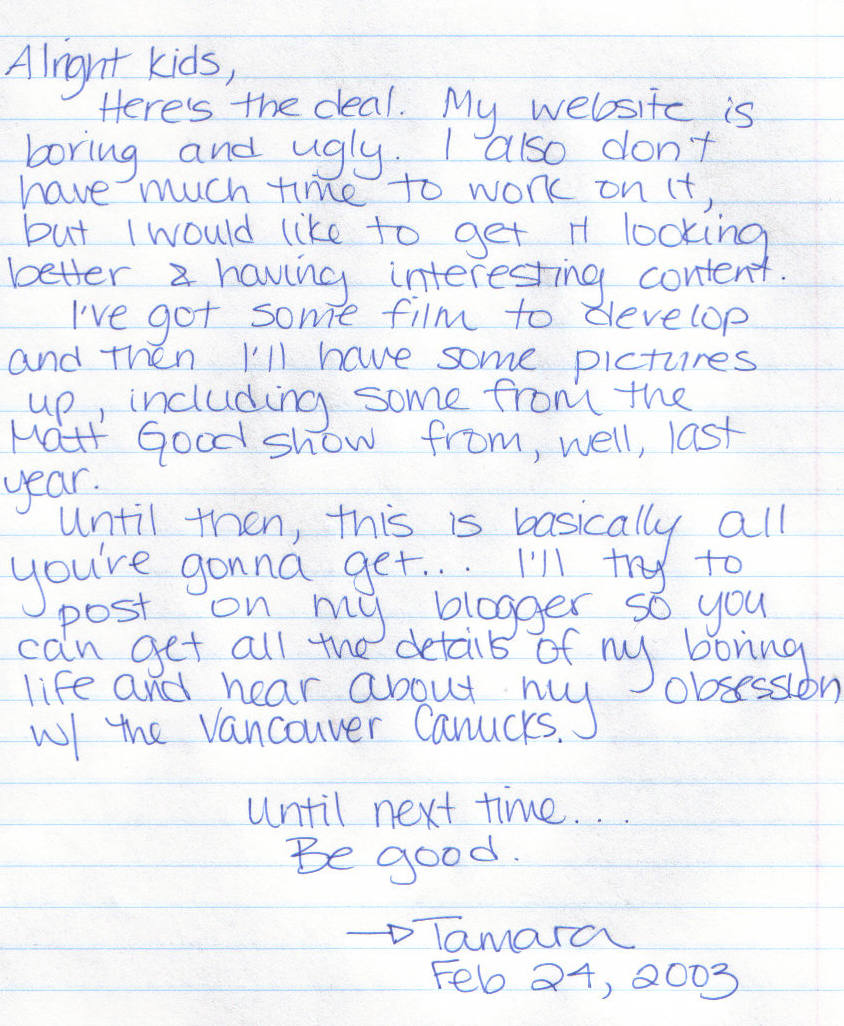 Alright kids,
Here's the deal. My website is
boring and ugly. I also don't
have much time to work on it,
but I would like to get it looking
better & having interesting content.
I've got some film to develop
and then I'll have some pictures
up, including some from the
Matt Good show from, well, last
year.
Until then, this is basically all
you're gonna get... I'll try to
post on my blogger so you
can get all the details of my boring
life and hear about my obsession
w/ the Vancouver Canucks.
Until next time...
Be good.
→Tamara
Feb 24, 2003